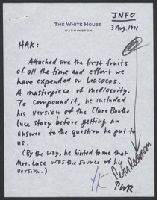 THE WHITE HOUSE
WASHINGTON
INFO
3 May, 1971
HAK:
Attached are the first fruits
of all the time and effort we
have expended on
A masterpiece of mediocrity.
To compound it, he included
his version of the Clare Boothe
Luce story before getting an
answer to the question he put to
us.
(By the way, he hinted to me that
Mrs. Luce was the source of his
version.)